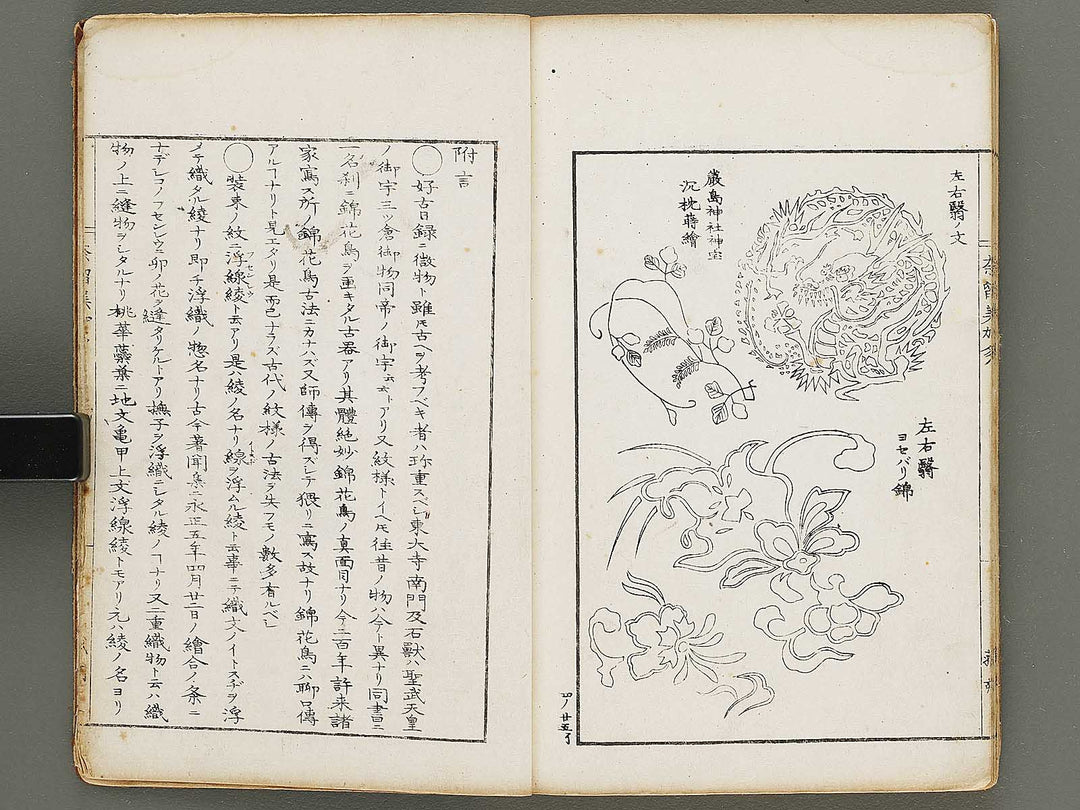 左右翳ノ文
嚴島神社神宝
沉枕蒔繪
左右翳
ヨセバリ錦
四ノ廿五了
附言
○好古日録ニ微物ト雖𪜈古ヘヲ考フベキ者ハ珍重スベシ東大寺南門及石獣ハ聖武天皇
ノ御宇三ツ倉御物同帝ノ御宇云々トアリ又紋様トイヘ𪜈往昔ノ物ハ今ト異ナリ同書ニ
一名刹ニ錦花鳥ヲ画キタル古器アリ其體絶妙錦花鳥ノ真面目ナリ今二百年許来諸
家寫ス所ノ錦花鳥古法ニカナハズ又師傳ヲ得ズシテ猥リニ寫ス故ナリ錦花鳥ニハ聊口傳
アルヿナリト見エタリ是而已ナラズ古代ノ紋様ノ古法ヲ失フモノ數多有ルベシ
○装束ノ紋ニ浮線綾ト云アリ是ハ綾ノ名ナリ線ヲ浮ムル綾ト云事ニテ織文ノイトスヂヲ浮
メテ織タル綾ナリ即チ浮織ノ惣名ナリ古今著聞集ニ永正五年四月廿二日ノ繪合ノ条ニ
ナデシコノフセンレウニ卯ノ花ヲ縫タリケルトアリ撫子ヲ浮織ニシタル綾ノヿナリ又二重織物ト云ハ織
物ノ上ニ縫物ヲシタルナリ桃華蘂葉ニ地文亀甲上文浮線綾トモアリ元ハ綾ノ名ヨリ